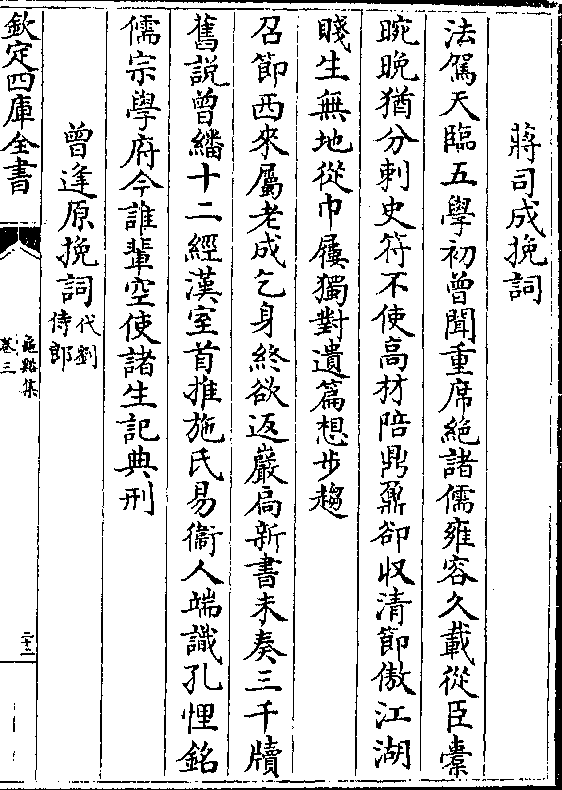 蔣司成挽詞
法駕天臨五學初曾聞重席絶諸儒雍容久載從臣橐
晼晚猶分刺史符不使高材陪鼎鼐卻收清節傲江湖
賤生無地從巾屨獨對遺篇想步趨
召節西來屬老成乞身終欲返巖扃新書未奏三千牘
舊説曾繙十二經漢室首推施氏易衞人端識孔悝銘
儒宗學府今誰輩空使諸生記典刑
曾逢原挽詞代劉侍郎
欽定四庫全書
龜谿集
卷三
二十二